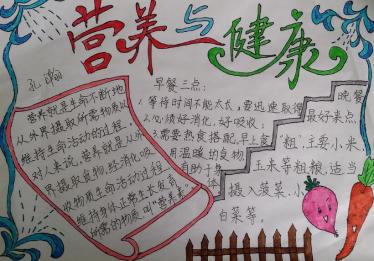 营养与健康
孔
营养就是生命不断地
从外界摄取所需物质以
维持生命活动的过程,
对人来说,营养就是从外
界摄取食物,经消化吸
收物质生命活动过程
维持身体正常生长发育
所需的物质,叫“营养素”。
早餐三点:
1、等待时间不能太长,需迅速取得
2、心绩好消化,好吸收;
3、需要热食搭配,早上食
用温暖的食物
有助于身
体
晚餐
最好来点
“粗”,主要小米
玉米等粗粮,适当
摄入菠菜、小
白菜等。